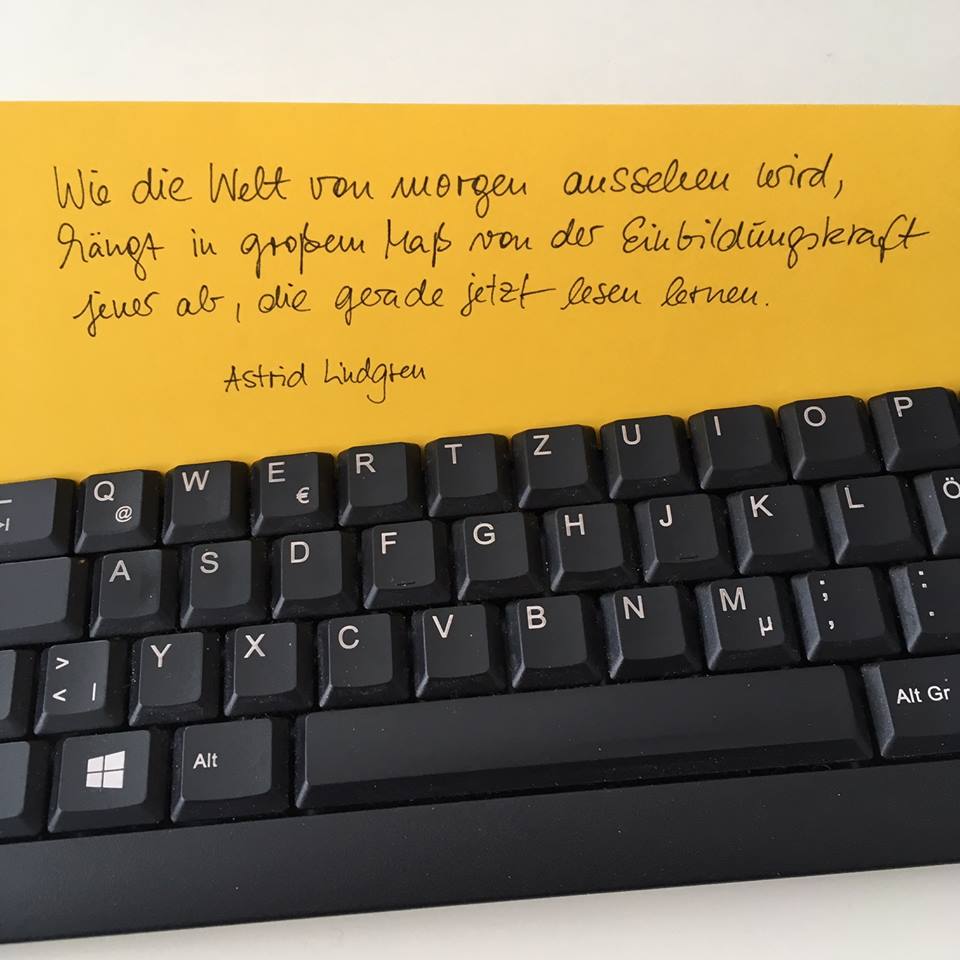 Wie die Welt von morgen aussehen wird,
hängt in großem Maß von der Einbildungskraft
jener ab, die gerade jetzt lesen lernen.
Astrid Lindgren
Q @ W E € R T Z U I O P
A S D F G H J K L Ö
> < | Y X C V B N M µ ; , : .
Alt Alt Gr